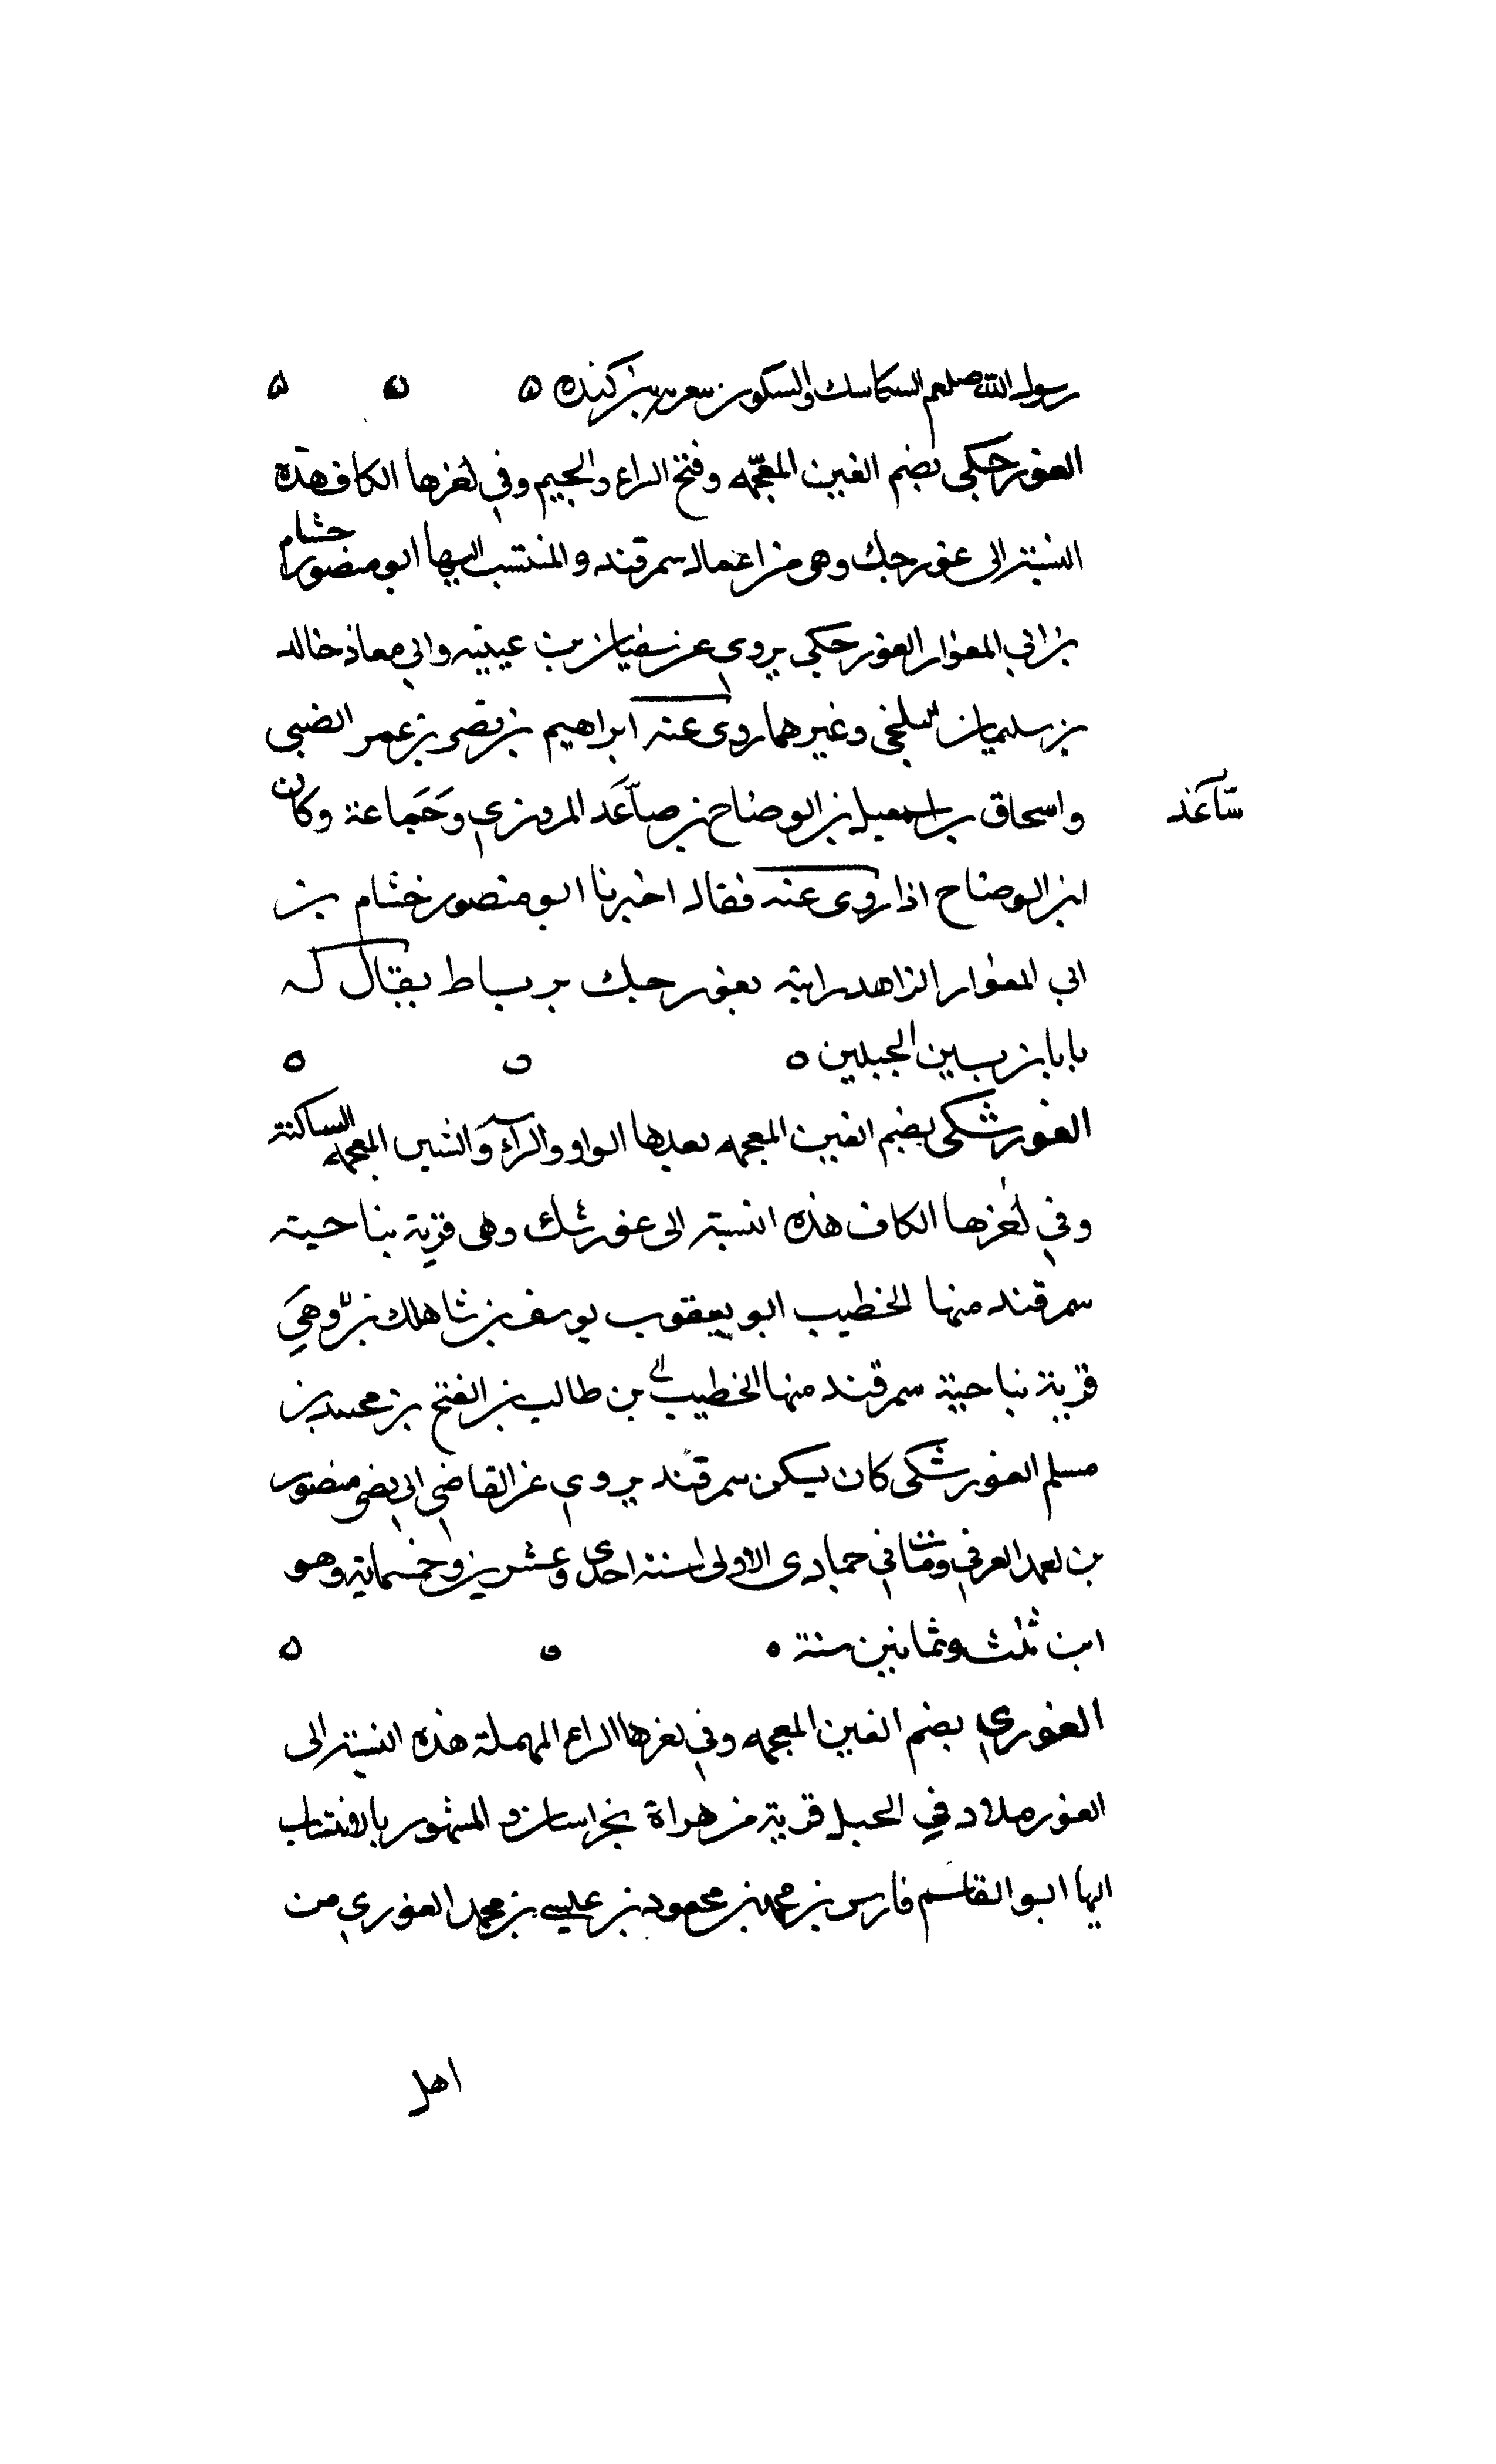 رسول الله صلعم السكاسك والسكون بن كندة ه ه ه
الغورجكى بضم الغين المعجمه وفتح الراء والجيم وفي اخرها الكاف هذه
النسبة الى غورجك وهى من اعمال سمرقند والمنتسب اليها ابو منصور خشام
بن ابي المغوار الغورجكى يروى عن سفيان بن عيينه وابي معاذ خالد
بن سليمان البلخى وغيرهما روى عنه ابراهيم بن نصر بن عمر الضبى
واسحاق بن اسمعيل بن الوضاح بن صاعد المروزي وجماعة وكان
ساعد
ابن الوضاح اذا روى عنه فقال اخبرنا ابو منصور خشام بن
ابي المغوار الزاهد رايته بغورجك برباط يقال له
بابان بين الجبلين ه ه ه
الغورشكى بضم الغين المعجمه بعدها الواو والراء والشين المعجمه الساكنة
وفي اخرها الكاف هذه النسبة الى غورشك وهى قرية بناحية
سمرقند منها الخطيب ابو يعقوب يوسف بن شاهك بن وهي
قرية بناحية سمرقند منها الخطيب بن طالب بن الفتح بن محمد بن
مسلم الغورشكى كان يسكن سمرقند يروي عن القاضى ابي نصر منصور
بن احمد الغزقي ومات في جمادى الاولى سنة احدى وعشرين وخمسماية وهو
ابن ثلث وثمانين سنة ه ه ه
الغوري بضم الغين المعجمه وفي اخرها الراء المهملة هذه النسبة الى
الغور بلاد في الجبل قريبة من هراة بخراسان والمشهور بالانتساب
اليها ابو القاسم فارس بن محمد بن محمود بن عيسى بن محمد الغوري من
اهل